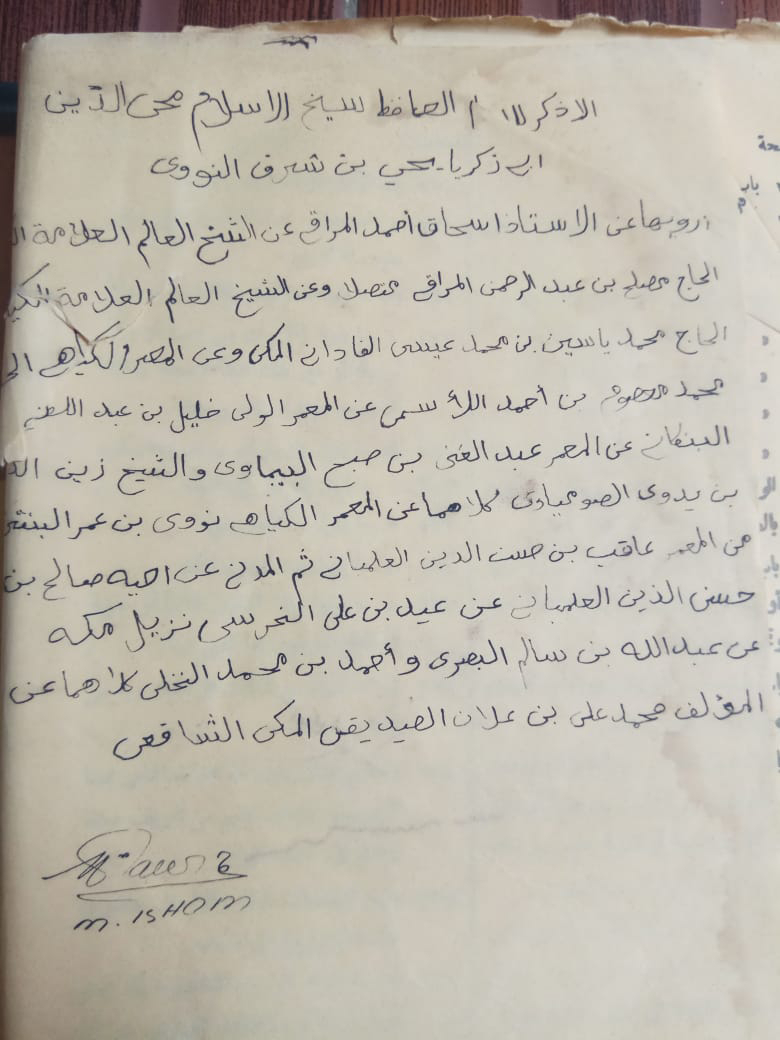 الاذكر ١١١ / الحافظ سيخ الاسلام محى الدين
ابى زكريا يحي بن شرف النووى
أرويها عن الاستاذ اسحاق أحمد المراقى عن الشيخ العالم العلامة
الحاج مصلح بن عبد الرحمن المراقى متصلا وعن الشيخ العالم العلامة
الحاج محمد ياسين بن محمد عيسى الفادانى المكى وعن المعمر الكياهى
محمد معصوم بن أحمد اللاسمى عن المعمر الولى خليل بن عبد اللطيف
البنكلانى عن المعمر عبد الغنى بن صبح البيماوى والشيخ زين
بن بدوى الصومباوى كلاهما عن المعمر الكياهى نووى بن عمر البنتنى
عن المعمر عاقب بن حسن الدين الفلمبانى ثم المدنى عن اخيه صالح بن
حسن الدين الفلمبانى عن عيد بن على النمرسى نزيل مكه
عن عبد الله بن سالم البصرى و أحمد بن محمد النخلى كلاهما عن
المؤلف محمد على بن علان الصديقى المكى الشافعى
M. ISHOM
باب